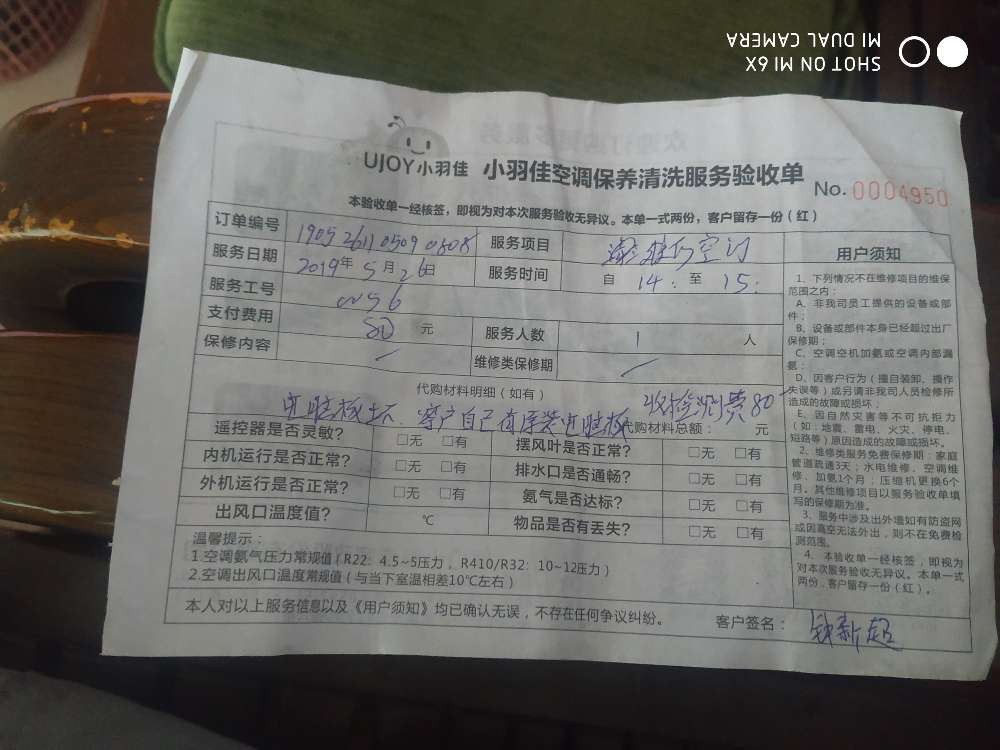 SHOT ON MI 6X
MI DUAL CAMERA
UJOY小羽佳 小羽佳空调保养清洗服务验收单 No. 0004950
本验收单一经核签，即视为对本次服务验收无异议。本单一式两份，客户留存一份（红）
订单编号 1905261105090808 服务项目 空订
服务日期 2019年5月26日 服务时间 自 14： 至 15：
服务工号
支付费用 80 元 服务人数 1 人
保修内容 维修类保修期
代购材料明细（如有）
电脑板坏 客户自己有原装电脑板 收检测费80
代购材料总额： 元
遥控器是否灵敏? □无 □有 摆风叶是否正常? □无 □有
内机运行是否正常? □无 □有 排水口是否通畅? □无 □有
外机运行是否正常? □无 □有 氨气是否达标? □无 □有
出风口温度值? ℃ 物品是否有丢失? □无 □有
温馨提示：
1.空调氨气压力常规值（R22：4.5~5压力，R410/R32：10~12压力）
2.空调出风口温度常规值（与当下室温相差10℃左右）
本人对以上服务信息以及《用户须知》均已确认无误，不存在任何争议纠纷。 客户签名： 新超
用户须知
1、下列情况不在维修项目的维保
范围之内：
A、非我司员工提供的设备或部
件；
B、设备或部件本身已经超过出厂
保修期；
C、空调空机加氨或空调内部漏
氨；
D、因客户行为（擅自装卸、操作
失误等）或另请非我司人员检修所
造成的故障或损坏；
E、因自然灾害等不可抗拒力
（如：地震、雷电、火灾、停电、
短路等）原因造成的故障或损坏。
2、维修类服务免费保修期：家庭
管道疏通3天；水电维修、空调维
修、加氨1个月；压缩机更换6个
月。其他维修项目以服务验收单填
写的保修期为准。
3、服务中涉及出外墙如有防盗网
或因高空无法外出，则不在免费检
测范围。
4、本验收单一经核签，即视为
对本次服务验收无异议。本单一式
两份，客户留存一份（红）。